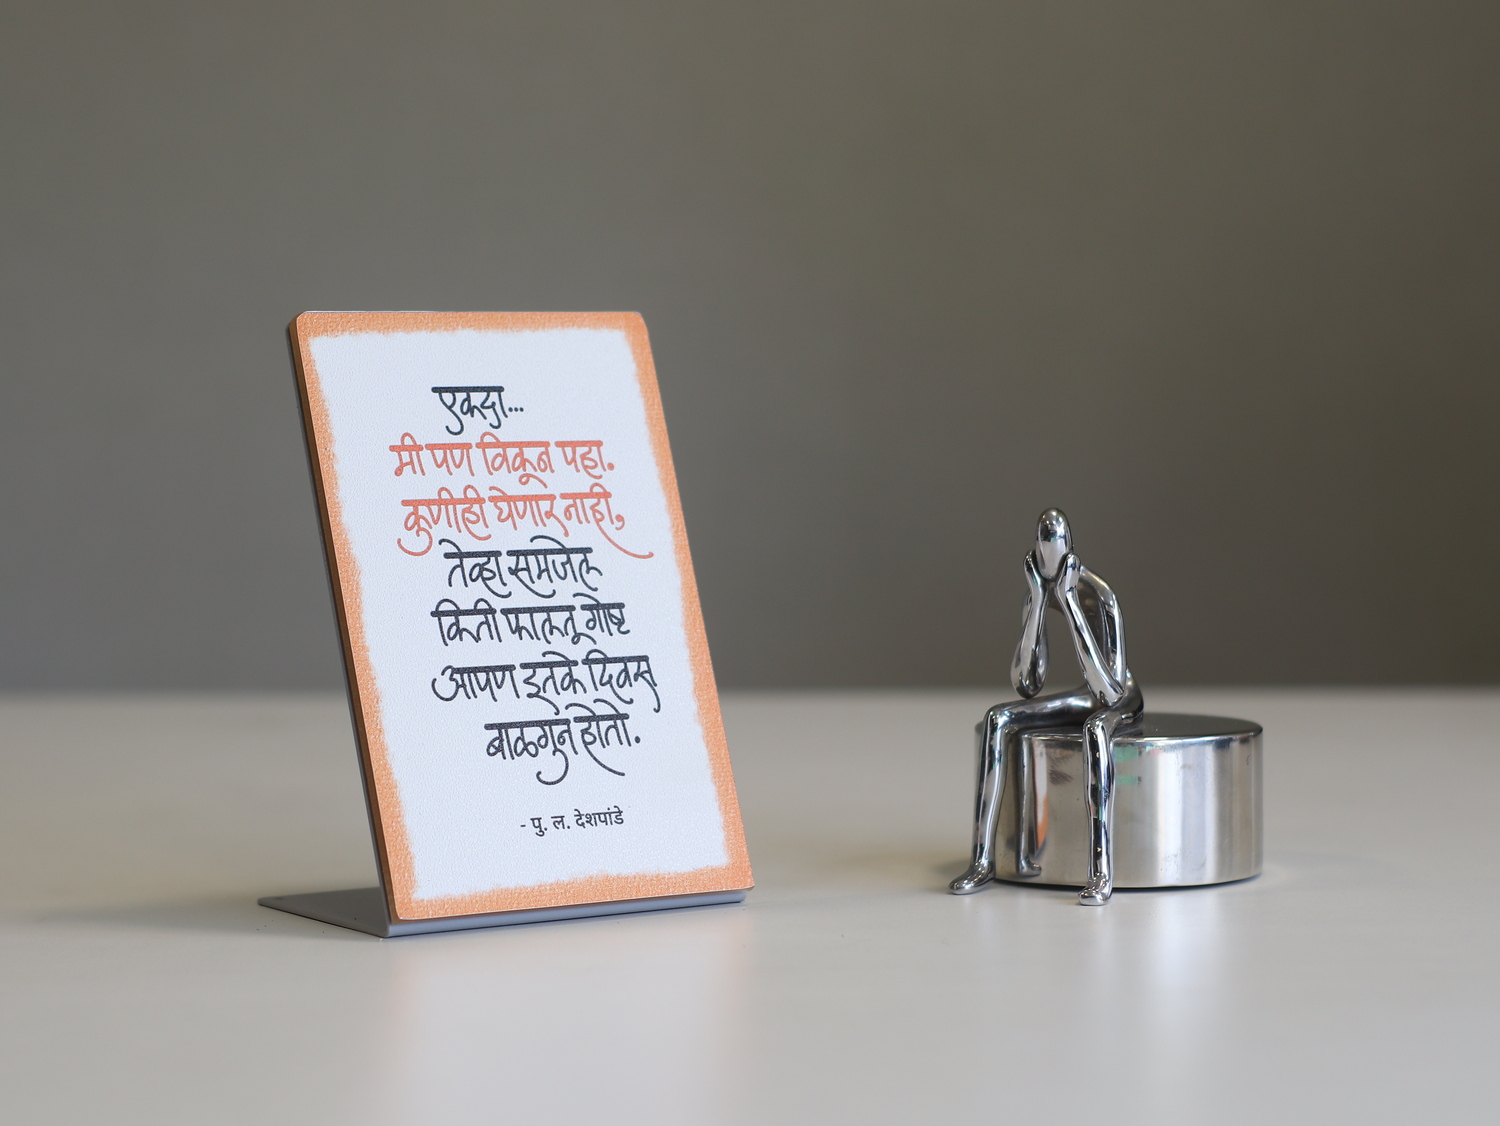 एकदा...
मी पण विकून पहा.
कुणीही घेणार नाही,
तेव्हा समजेल
किती फालतू गोष्ट
आपण इतके दिवस
बाळगून होतो.
- पु. ल. देशपांडे